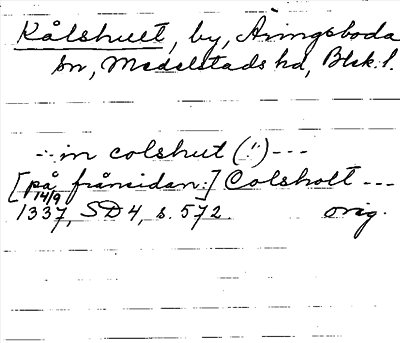 Kålshult, by, Åringsboda
sn, Medelstads hd, Blek. l.
--- in colshut (!) ---
[på frånsidan:] Colsholt ---
14/9
1337, SD 4, s. 572. orig.